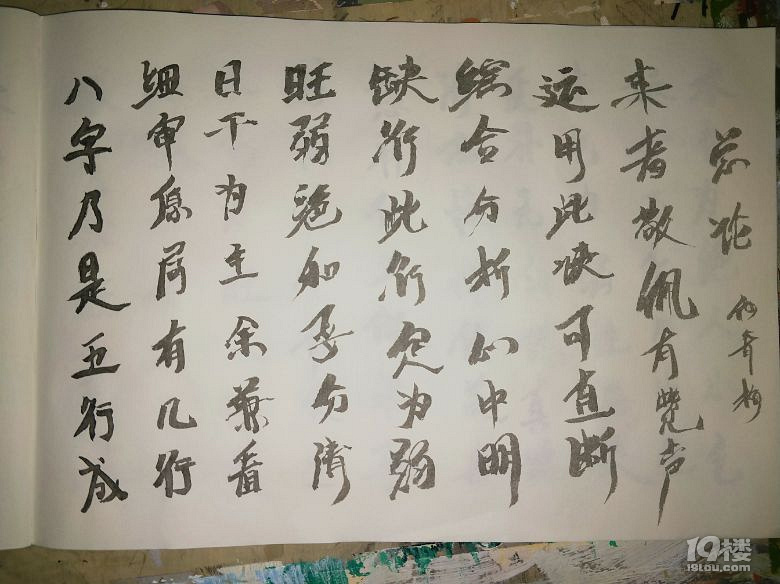 八字乃是五行成
细审您属有几行
日干为主余兼看
旺弱绝和要分清
缺行此行定为弱
综合分析心中明
运用此诀可直断
来者敬佩有赞声
总论
19楼
19lou.com